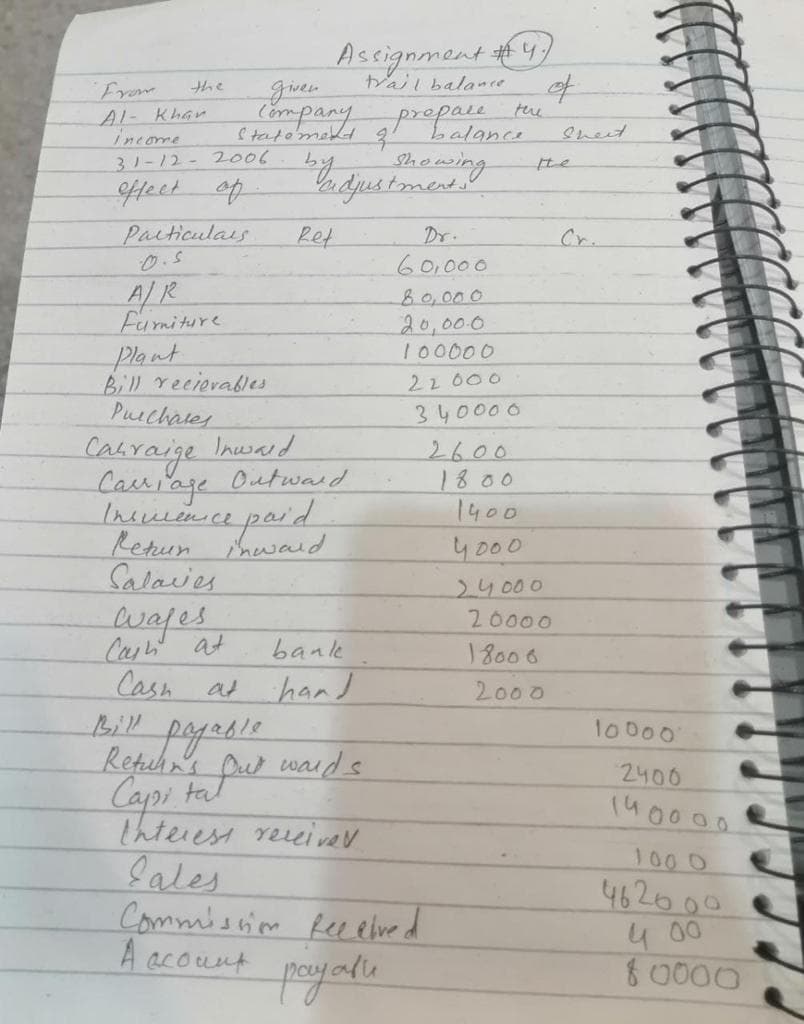 Assignment # 4.
From the given trail balance of
Al- Khan Company prepare the
income Statement & balance Sheet
31-12-2006 by showing the
effect of adjustments
Particulars Ref Dr. Cr.
O.S 60,000
A/R 80,000
Furniture 20,000
Plant 100000
Bill recievables 22000
Purchases 340000
Carraige Inward 2600
Carriage Outward 1800
Insurance paid 1400
Return inward 4000
Salaries 24000
Wages 20000
Cash at bank 18000
Cash at hand 2000
Bill payable 10000
Returns Out wards 2400
Capital 140000
Interest received 1000
Sales 462000
Commission Received 400
Account payable 80000